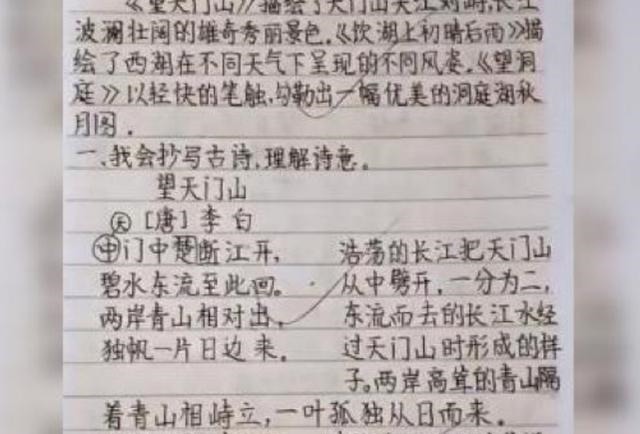 《望天门山》描绘了天门山夹江对峙,长江
波澜壮阔的雄奇秀丽景色.《饮湖上初晴后雨》描
绘了西湖在不同天气下呈现的不同风姿.《望洞
庭》以轻快的笔触,勾勒出一幅优美的洞庭湖秋
月图.
一、我会抄写古诗,理解诗意。
望天门山
[唐]李白
天
中门中楚断江开, 浩荡的长江把天门山
碧水东流至此回。 从中劈开,一分为二,
两岸青山相对出, 东流而去的长江水经
独帆一片日边来。 过天门山时形成的样
子。两岸高耸的青山隔
着青山相峙立,一叶孤独从日而来。